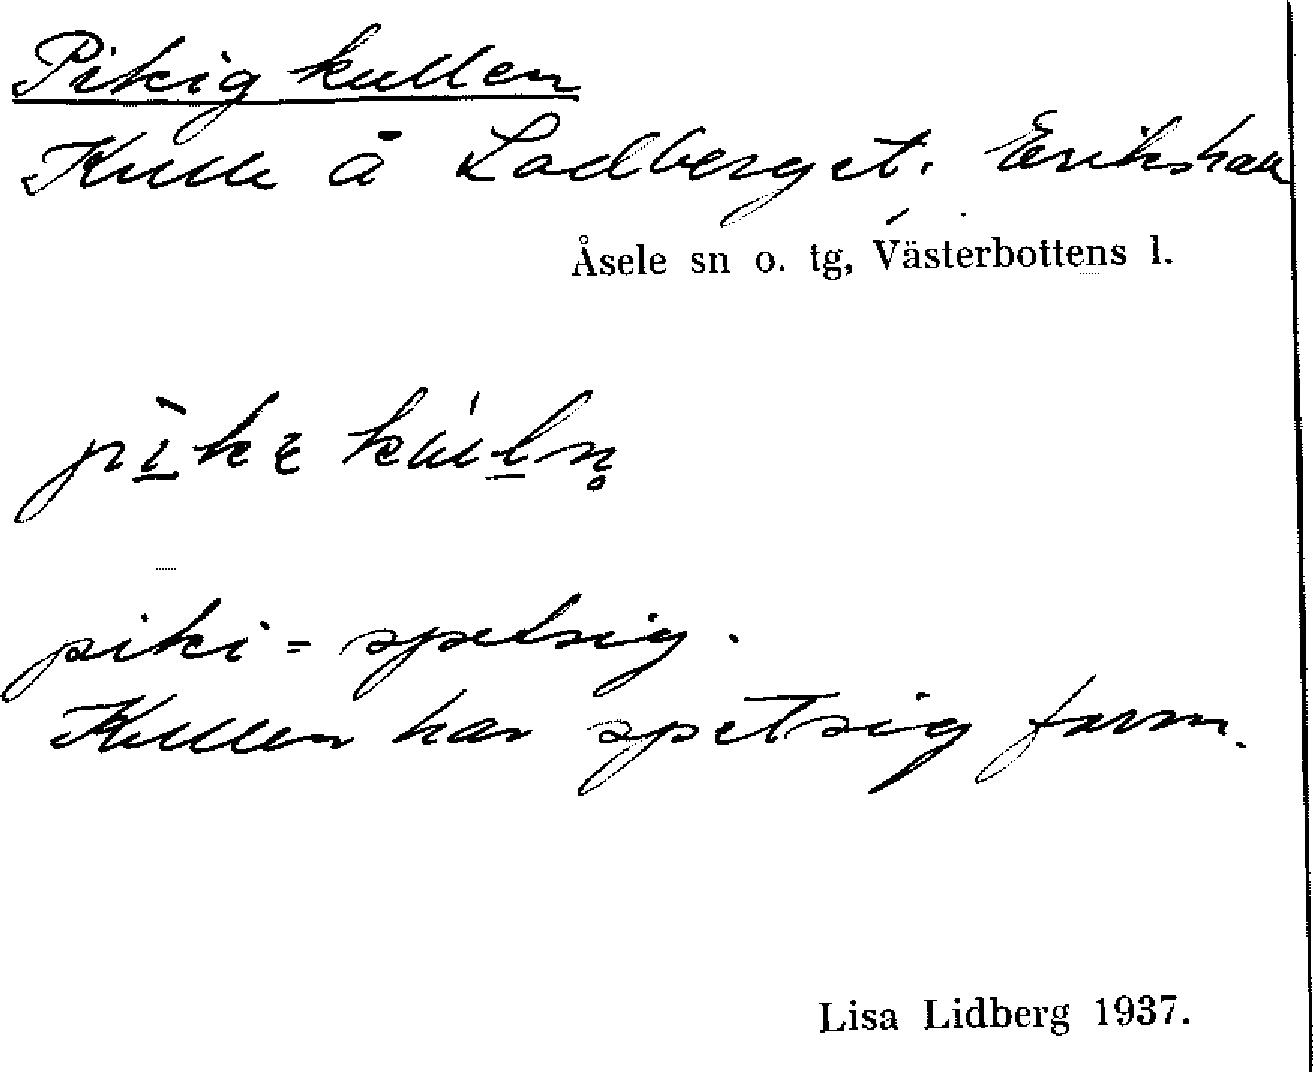 Pikig kullen
Kulle å Ladberget.
Åsele sn o. tg, Västerbottens l.
piki = spetsig.
Kullen har spetsig form.
Lisa Lidberg 1937.